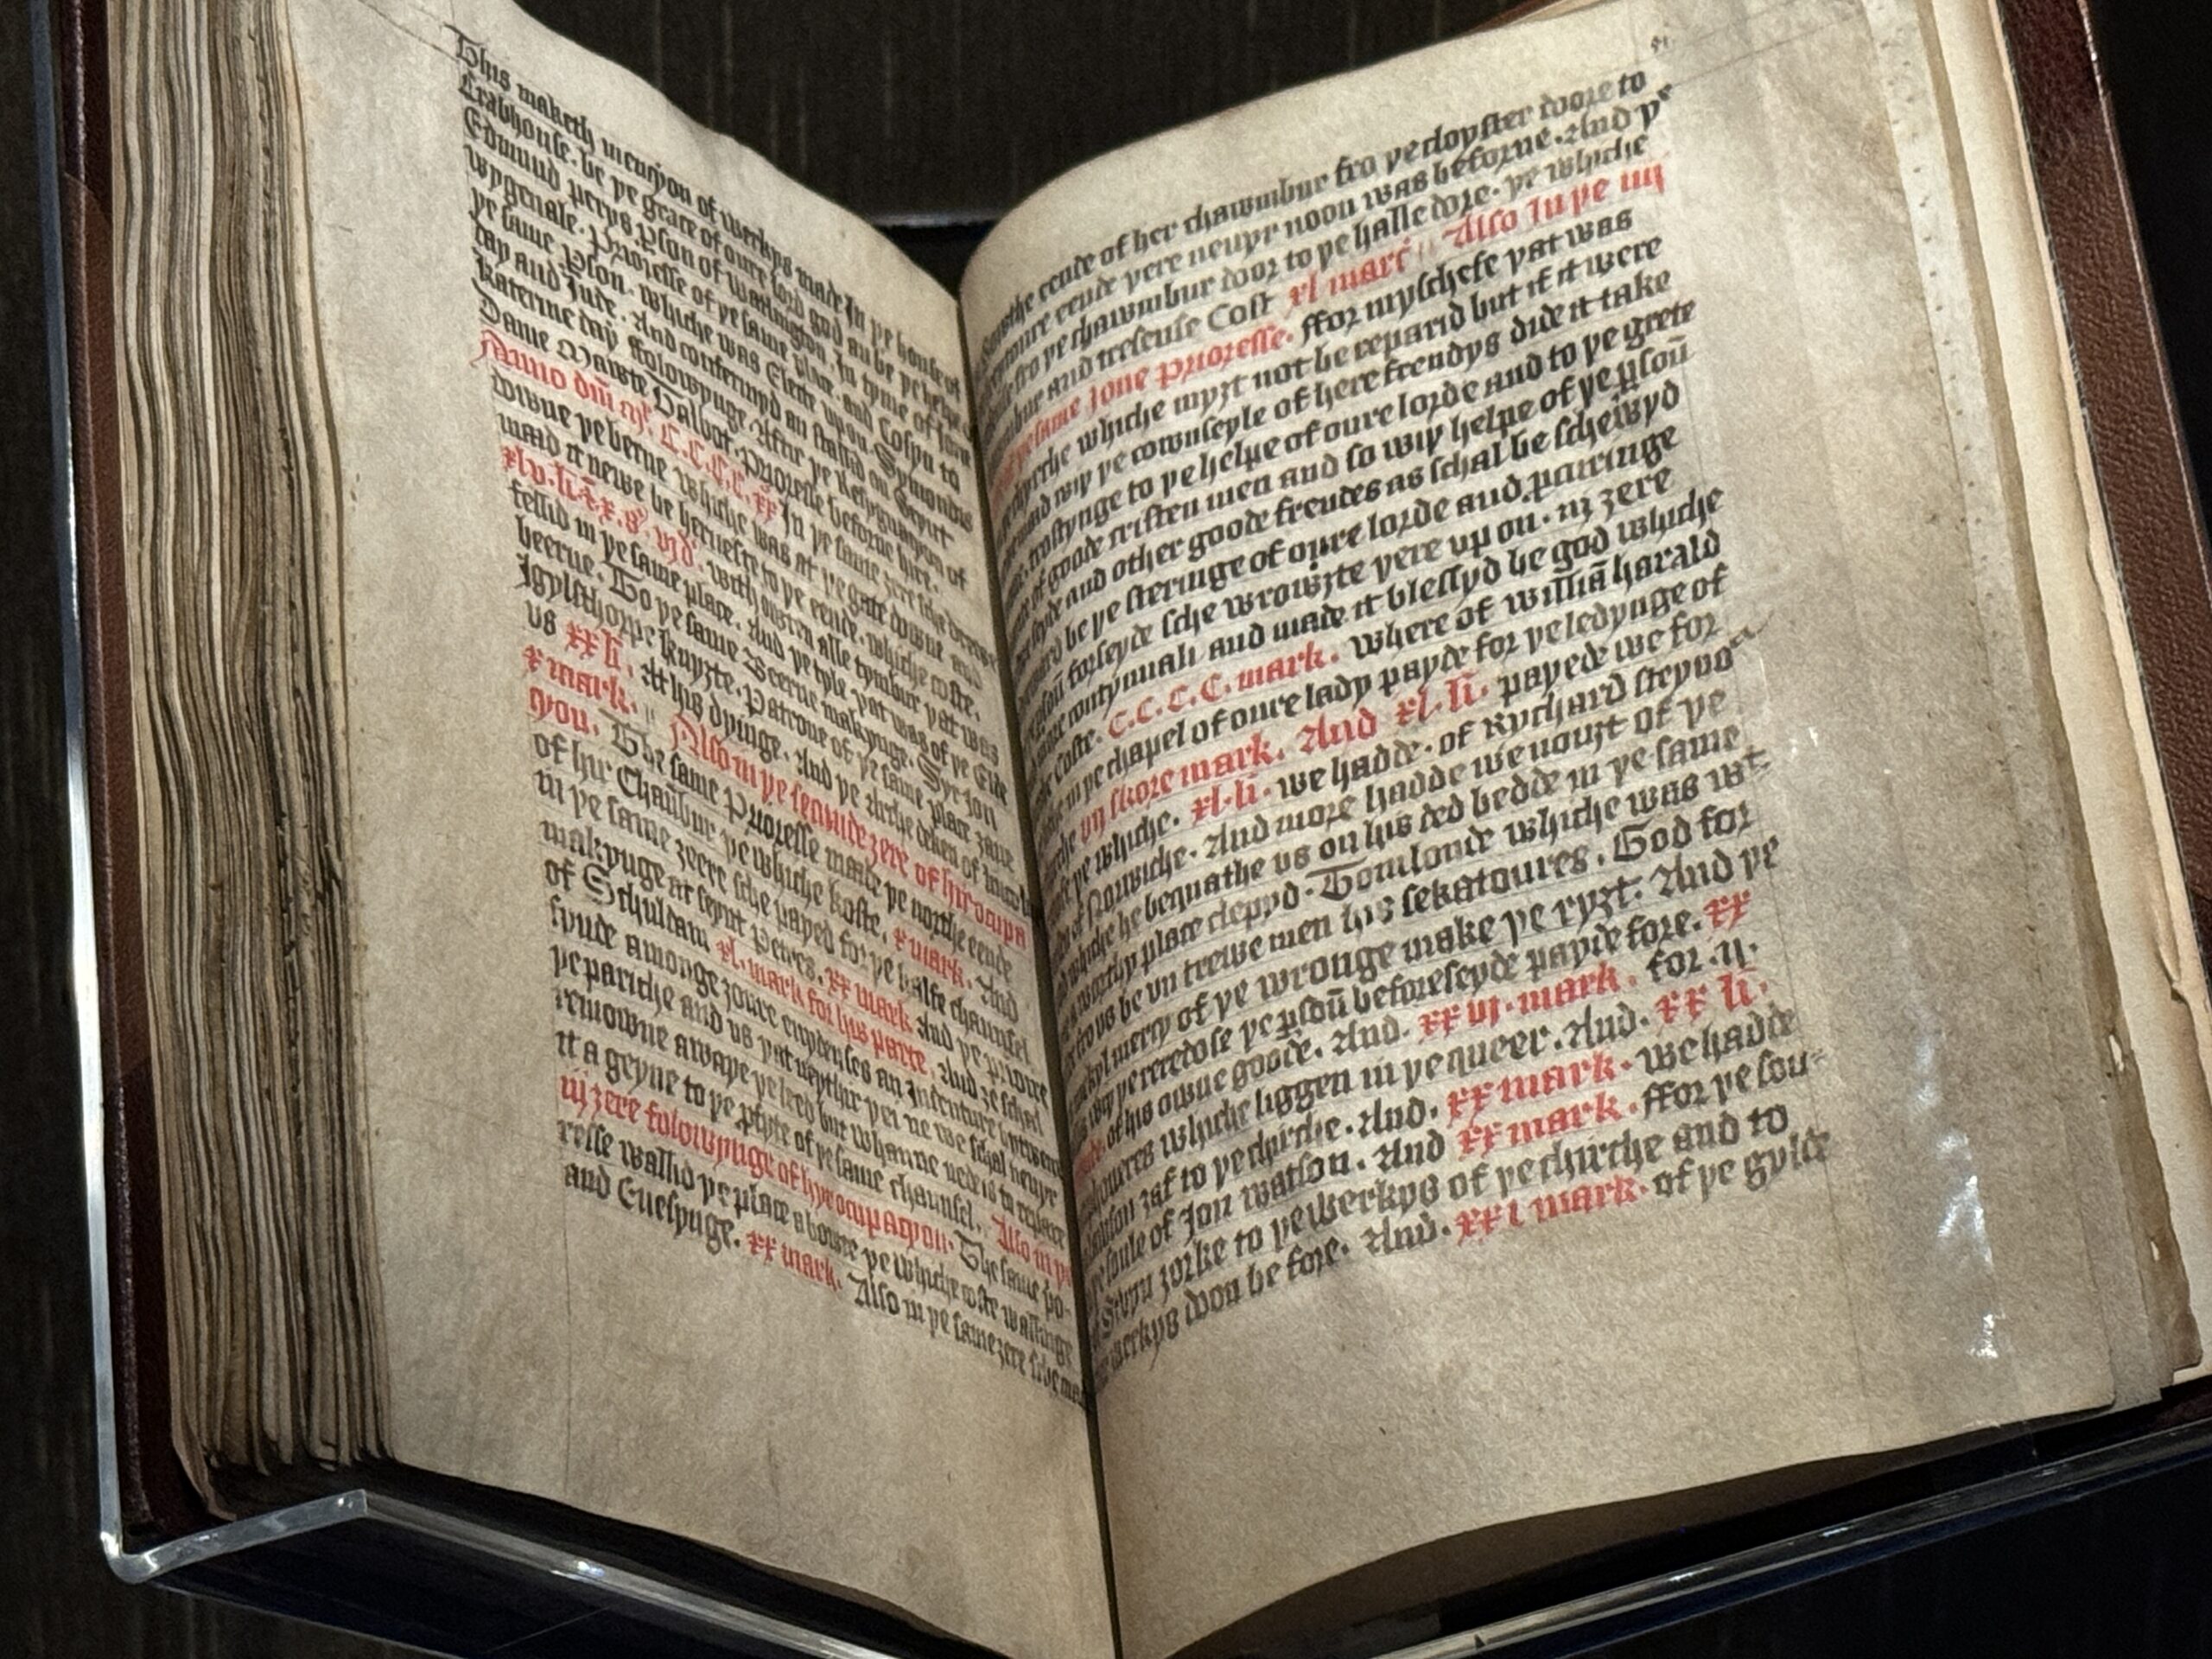 This maketh mencyon of werkys made In ye house of
Crabhouse. be ye grace of oure lord god an be ye helpe of
Edmund perys. Pson of Watlington. In tyme of Jone
wygenale. Prioresse of ye same place. and Cosyn to
ye same Pson. whiche was Electe upon Symondis
day and Jude. And confermyd an stallid on Seynt
Katerine day ffolowynge. After ye Resygnacyon of
Dame Mawte Talbot. Prioresse beforne hire.
Anno dni mº. C.C.C.C. xx In ye same zere sche
downe ye berne whiche was at ye gate downe and
maad it newe be heruest to ye eende. whiche coste.
xlv. li. & x. s. vjd. with owten alle tymbur yat was
fellid in ye same place. And ye tyle yat was of ye Elde
beerne. To ye same Beerne makynge. Syr Jon
Jgylsthorpe knyzte. Patrone of ye same place zaue
us xx li. At his dyinge. And ye Arche deken of
x mark. Also in ye secunde zere of hir ocupa
cyon. The same Prioresse made ye northe eende
of hir Chaūbur ye whiche koste. x mark. And
in ye same zeere sche payed for ye halfe chaunsel
makynge at seynt Peteres. xx mark And ye priore
of Schuldam xl. mark for his parte. And ze schal
fynde amonge zoure euydenses an Indenture betwene
ye parische and us yat neythir yei ne we schal neuyr
remowne awaye ye leed but whanne nede is to repare
it a geyne to ye plyte of ye same chaunsel. Also in ye
iij zere folowynge of hyr ocupacyon. The same prio-
resse wallid ye place abowte ye whiche coste wallinge
and Euesynge. xx mark. Also in ye same zere sche made
ye cende of her chawmbur fro ye cloyster dore to
eende yere neuyr noon was beforne. And ye
fro ye chawmbur door to ye halle dore. ye whiche
and tresense Cost xl marc. Also In ye iiij
same Jone Prioresse. ffor myschefe yat was
chyrche whiche myzt not be reparid but if it were
and wiy ye cownseyle of here frendys dide it take
trostynge to ye helpe of oure lorde and to ye grete
of goode cristen men and so wiy helpe of ye psoū
and other goode frendes as schal be schewyd
be ye steringe of owre lorde and puringe
forseyde sche wrowzte yere up on. iij zere
contynuali and made it blessyd be god whiche
coste. C.C.C.C. mark. Where of williā harald
in ye chapel of oure lady payde for ye ledynge of
vij skore mark. And xl. li. payede we for
ye whiche. xl. li. we hadde. of Rychard steyno
of Norwiche. And more hadde we nouzt of ye
he bequathe us on his ded bedde in ye same
worthy place clepyd. Tomlonde whiche was wt
fro us be un trewe men his sekatoures. God for
mercy of ye wronge make ye ryzt. And ye
ye reredose ye psoū beforeseyde payde fore. xx
of his owne goode. And. xx vj. mark. for. ij.
whiche liggen in ye queer. And. xx li.
zaf to ye chirche. And. xx mark. we hadde
soule of Jon watson. And xx mark. ffor ye sou-
zorke to ye werkys of ye chirche and to
werkys don be fore. And. xx i mark. of ye gylde